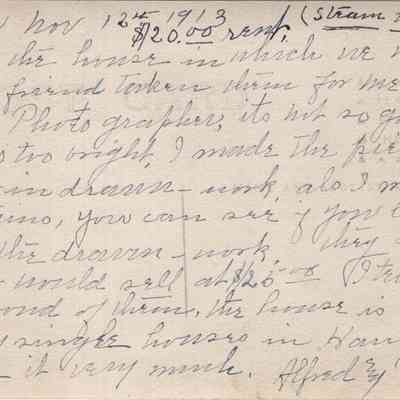 Nov 12th 1913 (Steam
$20.00 rent.
the house in which we
friend taken them for me
Photographer, its not so
too bright, I made the
in drawn-work, alo I
you can see if you
the drawn-work, they
would sell at $25.00 I
ond of them, the house is
single houses in
it very much. Alfred